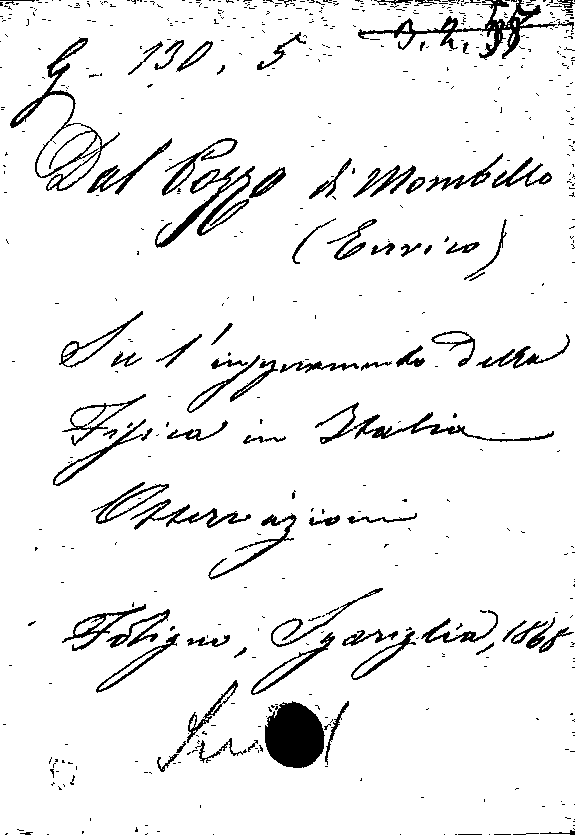 G - 130, 5
3. 2.
Dal Pozzo di Mombello
(Enrico)
Su l'insegnamento della
Fisica in Italia
Osservazioni
Foligno, Sgariglia, 1868